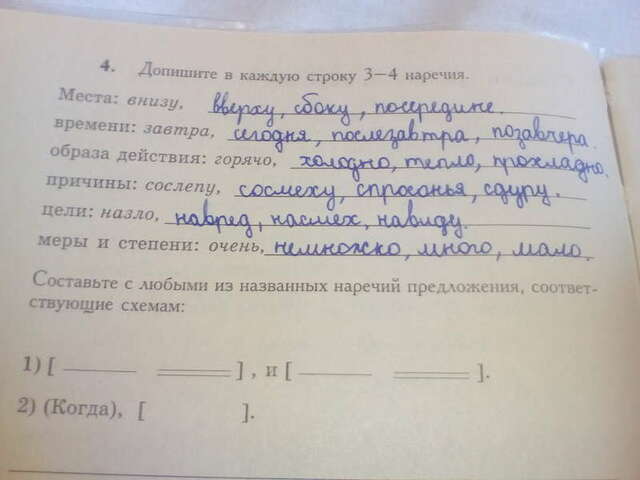 4. Допишите в каждую строку 3—4 наречия.
Места: внизу, вверху, сбоку, посередине.
времени: завтра, сегодня, послезавтра, позавчера.
образа действия: горячо, холодно, тепло, прохладно.
причины: сослепу, сосмеху, спросонья, сдуру.
цели: назло, навред, насмех, навиду.
меры и степени: очень, немножко, много, мало.
Составьте с любыми из названных наречий предложения, соответ-
ствующие схемам:
1) [ ], и [ ].
2) (Когда), [ ].